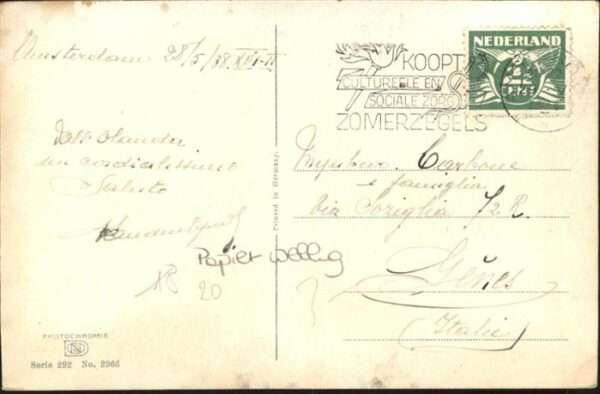 Amsterdam 28/5/38. XVI-II
Dall' Olanda
un cordialissimo
Saluto
Papier wellig
20
PHOTOCHROMIE
Serie 292 No. 2966
Printed in Germany.
KOOPT
CULTUREELE EN
SOCIALE ZORG
ZOMERZEGELS
NEDERLAND
Carbone
e famiglia
Via Coziglia 7/2 R.
Gênes
(Italie)